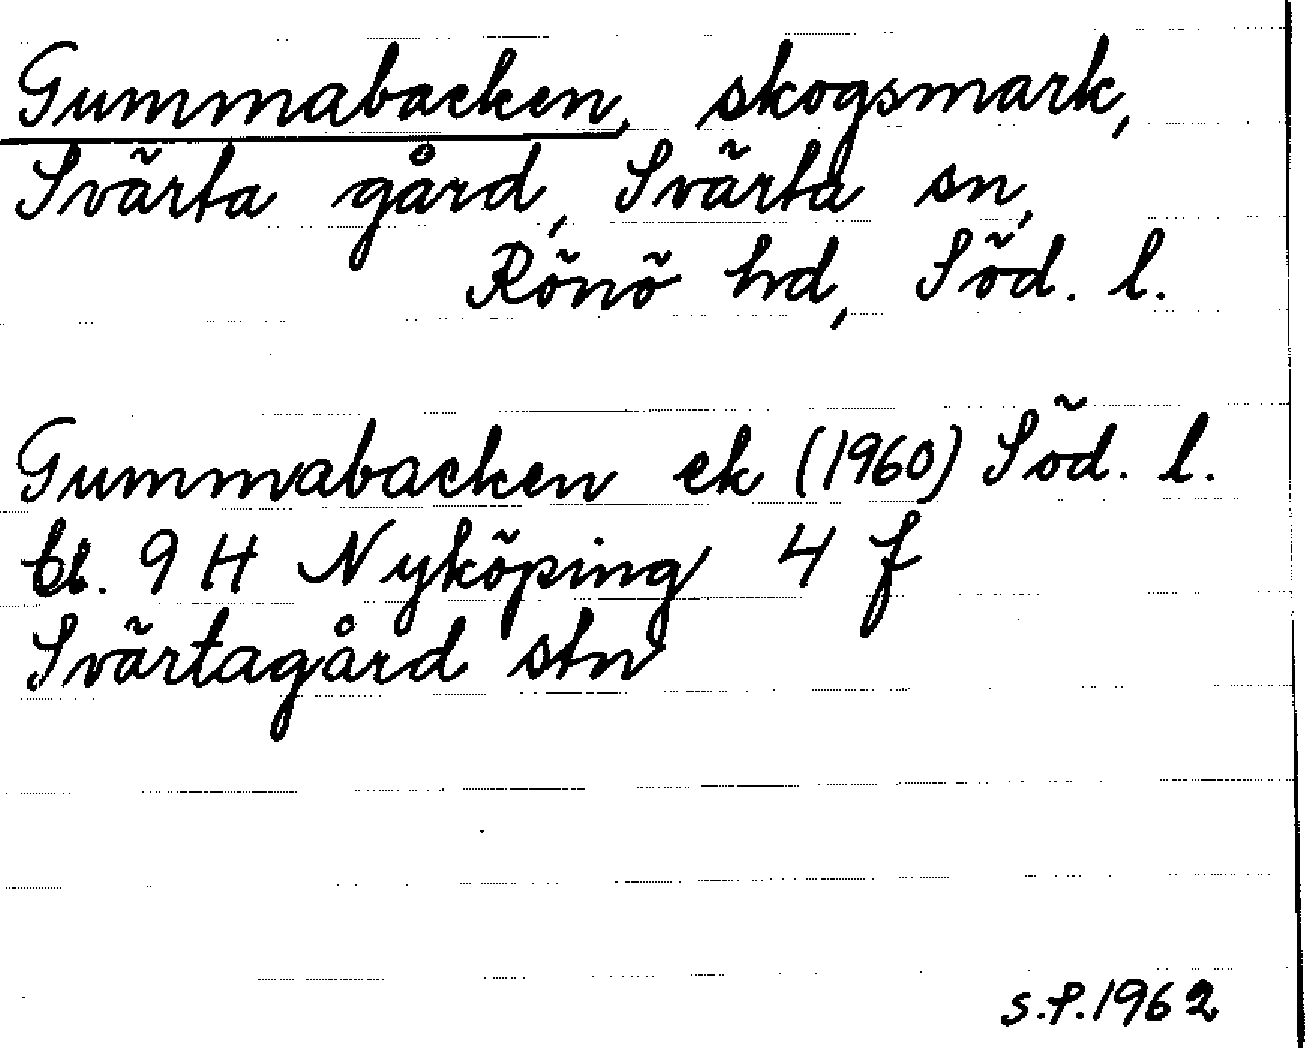 Gummabacken, skogsmark,
Svärta gård, Svärta sn,
Rönö hd, Söd. l.
Gummabacken ek (1960) Söd. l.
bl. 9 H Nyköping 4 f
Svärtagård stn
S.P. 1962